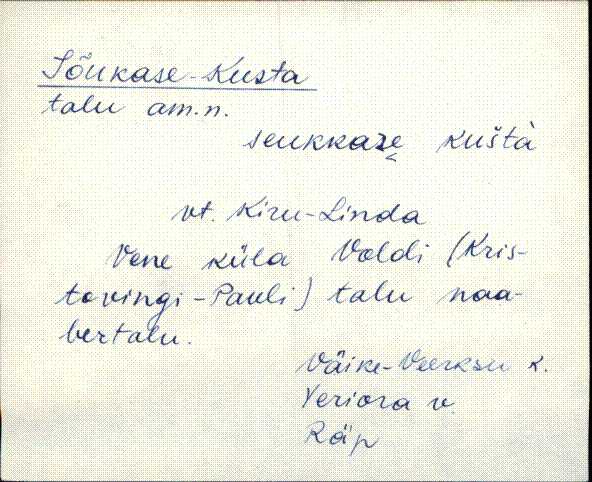 Sõukase-Kusta
talu am.n.
seukkaze kuštà
vt. Kiru-Linda
Vene küla Voldi (Kris-
tovingi-Pauli) talu naa-
bertalu.
Väike-Veerksu k.
Veriora v.
Räp